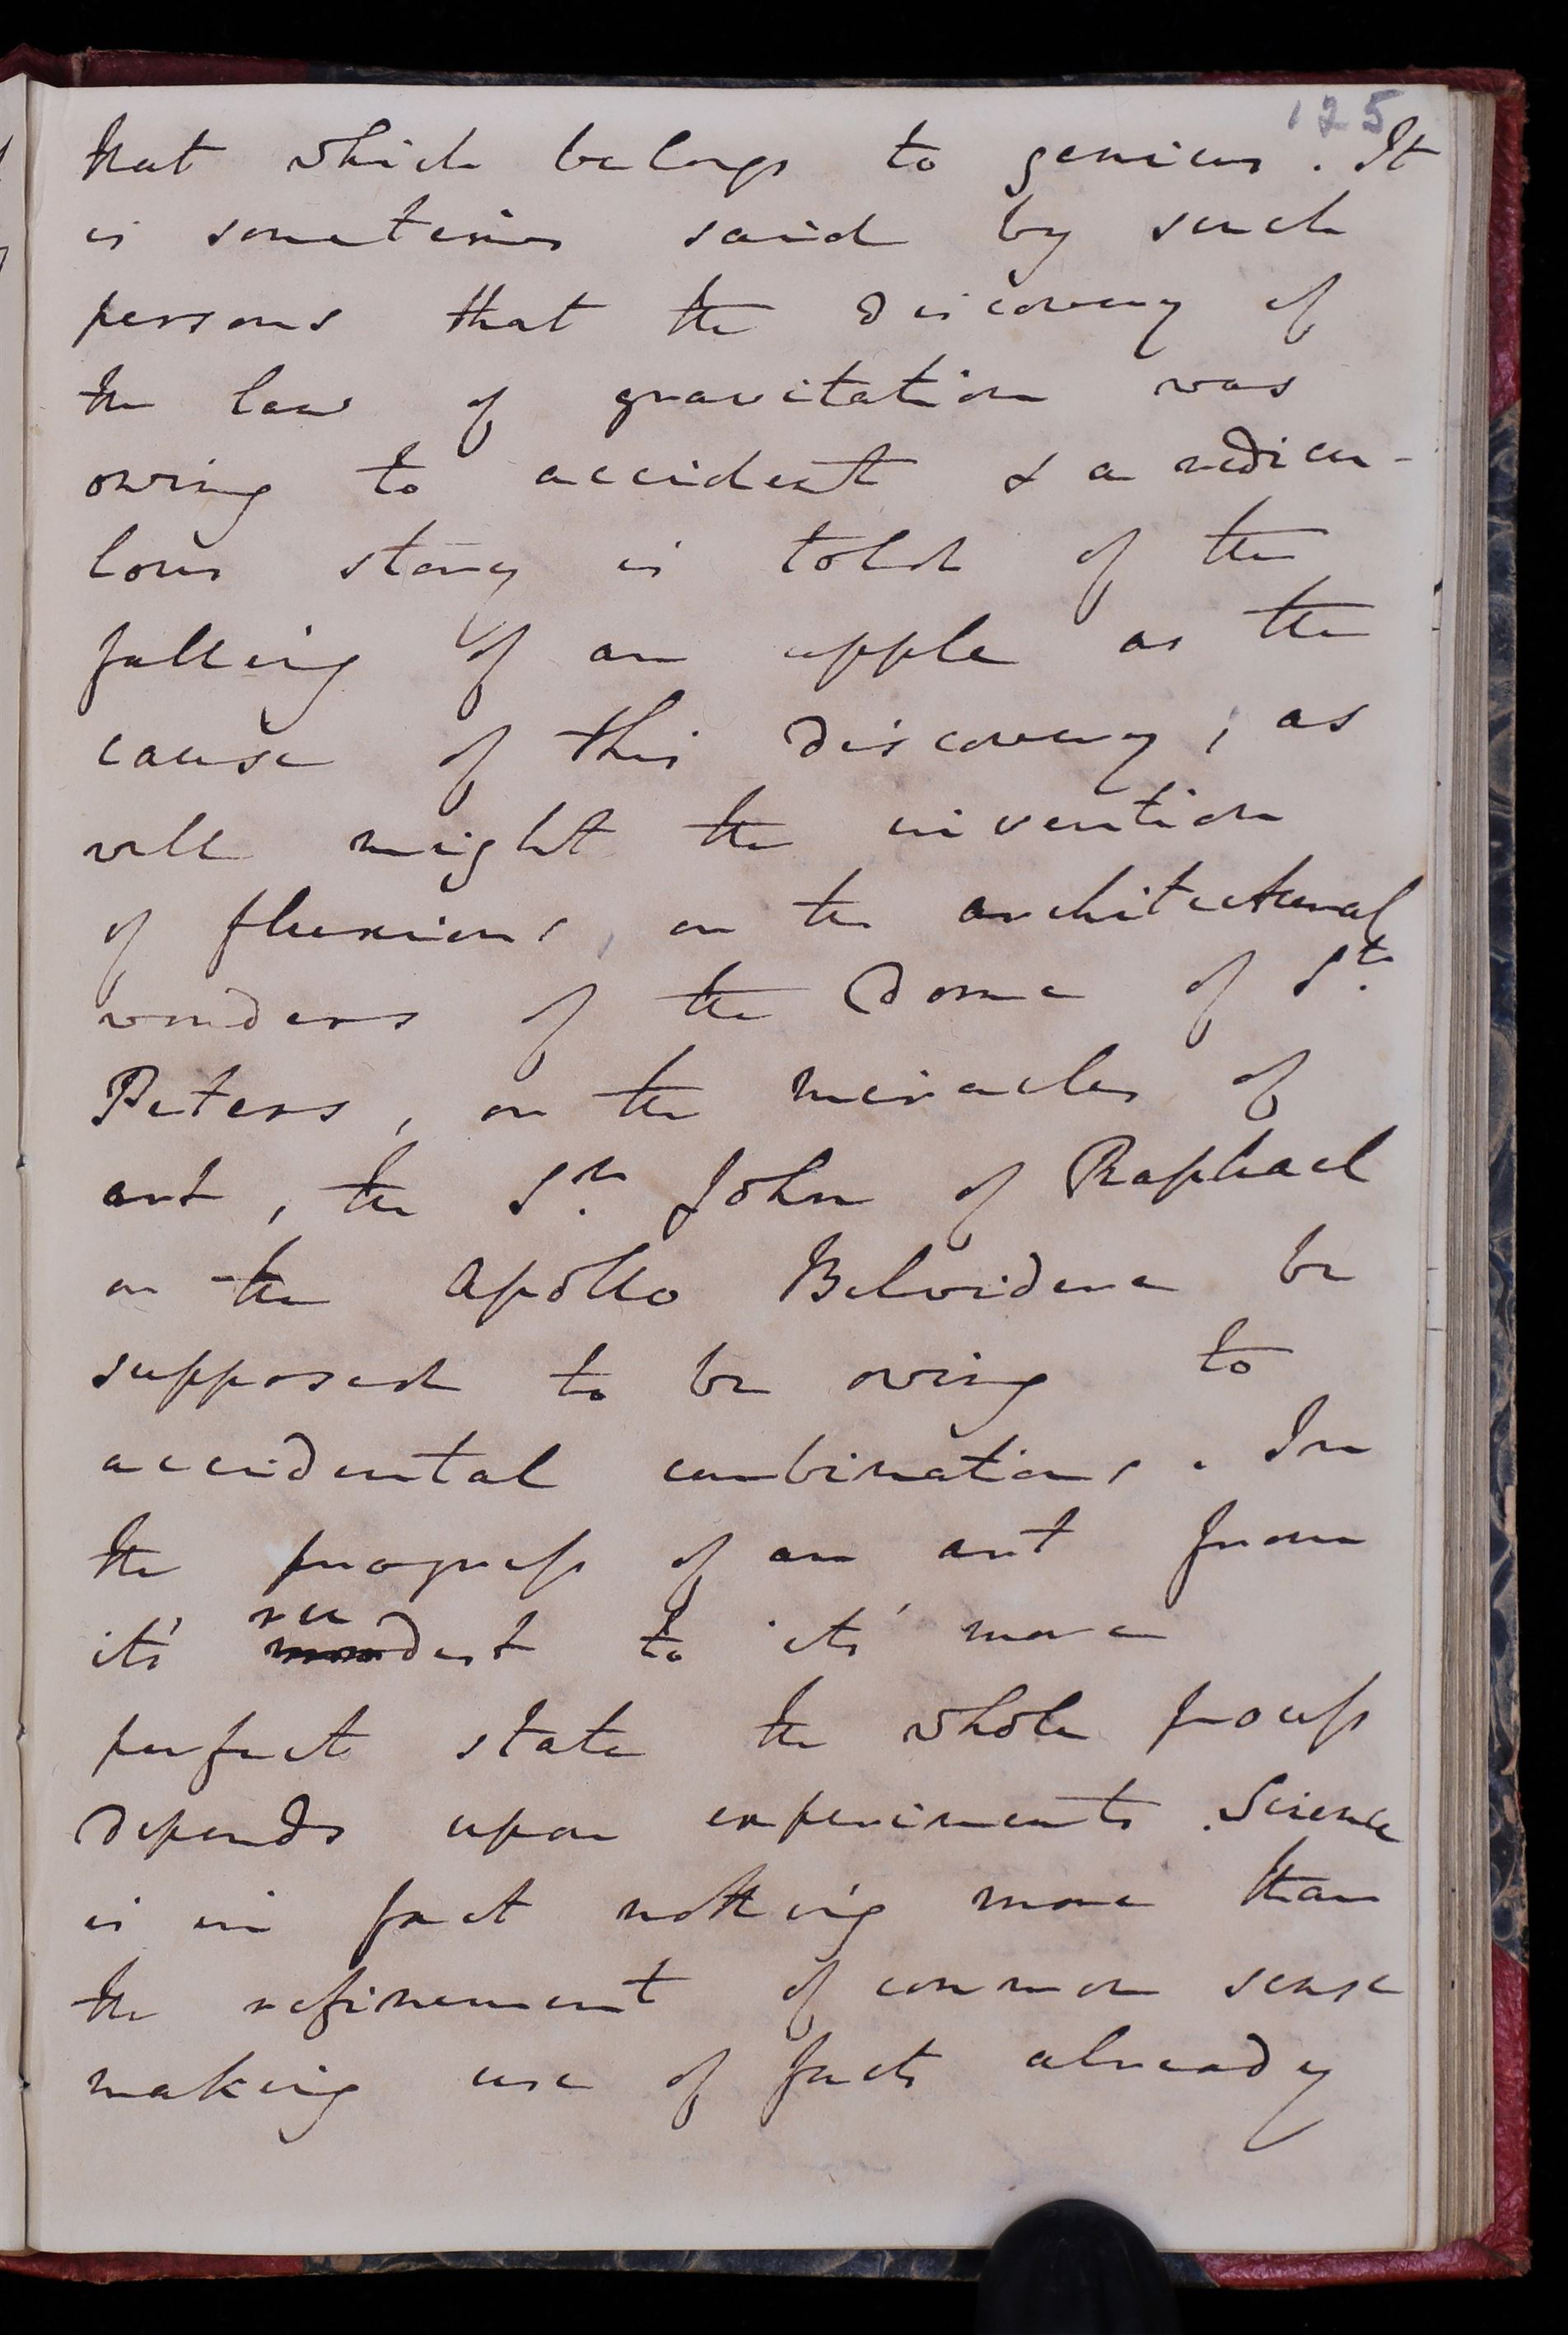 125
that which belongs to genius. It
is sometimes said by such
persons that the discovery of
the law of gravitation was
owing to accident & a ridicu-
lous story is told of the
falling of an apple as the
cause of this discovery; as
well might the invention
of fluxions, or the architectural
wonders of the Dome of St.
Peters, or the miracles of
art, the St. John of Raphael
or the Apollo Belvidere be
supposed to be owing to
accidental combinations. In
the progress of an art from
ru
it's dest to it's more
perfect state the whole process
depends upon experiments. Science
is in fact nothing more than
the refinement of common sense
making use of facts already